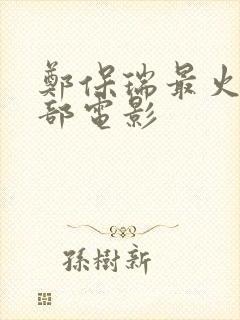 鄭保瑞最火
部電影
孫樹新